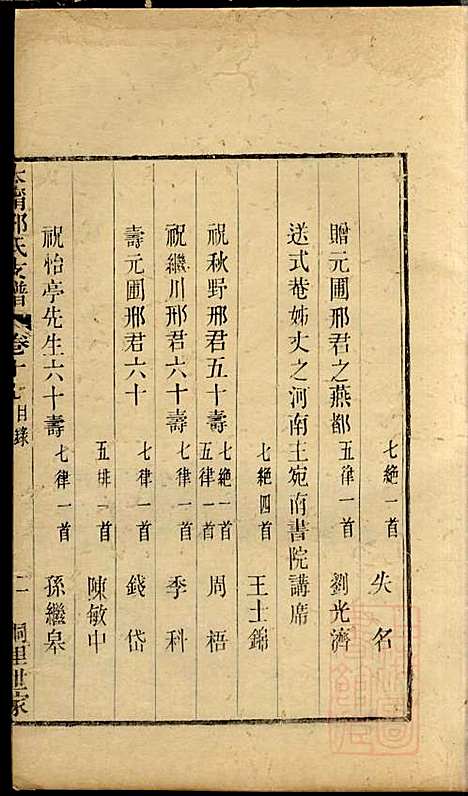 七絶一首 失名
贈元圃邢君之燕都 五律一首 劉光濟
送式菴姊丈之河南主宛南書院講席
七絶四首 王士錦
祝秋野邢君五十壽 七絶一首 五律一首 周梧
祝繼川邢君六十壽 七律一首 季科
壽元圃邢君六十 七律一首 錢岱
五排一首 陳敏中
祝怡亭先生六十壽 七律一首 孫繼皋
邢氏支譜 卷十 目錄 二 世家